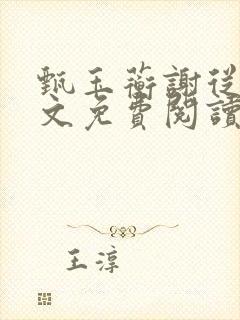 甄玉蘅謝從
文免費閱讀
王淳